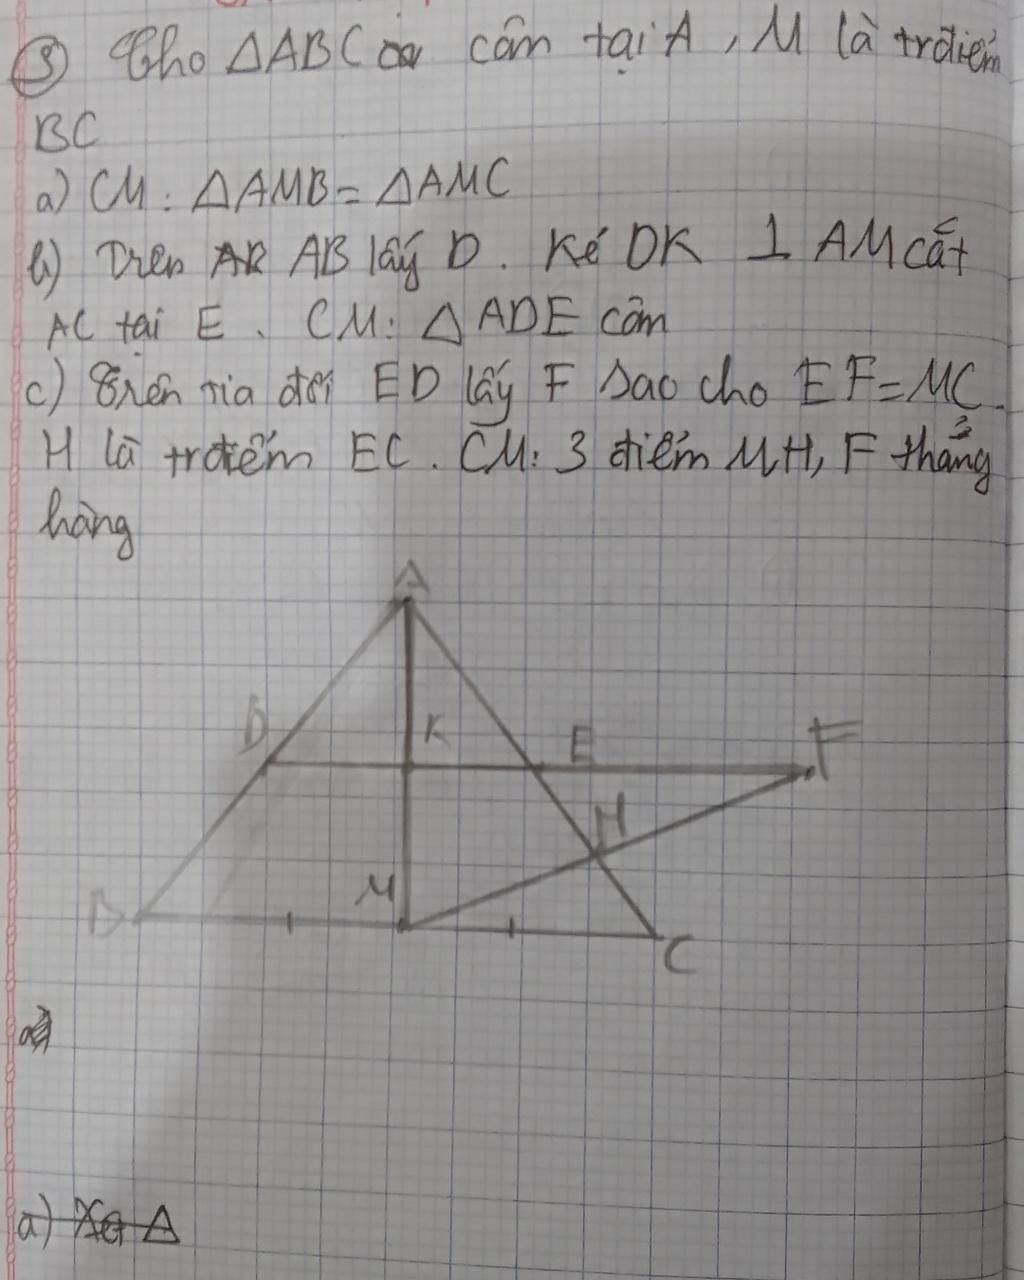 3 Cho △ABC cân tại A, M là trđiểm
BC
a) CM: △AMB = △AMC
b) Trên AB lấy D. Kẻ DK ⊥ AM cắt
AC tại E. CM: △ADE cân
c) Trên tia đối ED lấy F sao cho EF = MC.
H là trđiểm EC. CM: 3 điểm M H, F thẳng
hàng
A
D K E F
H
B M
C
a)
a) Xét △